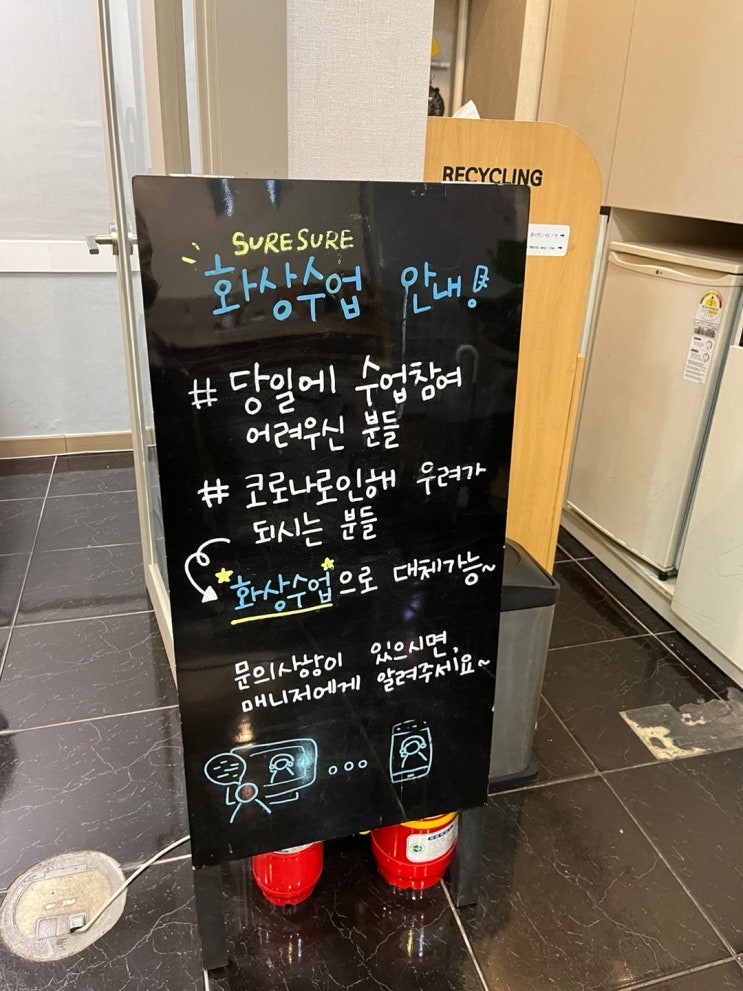 RECYCLING
SURESURE
화상수업 안내!
# 당일에 수업참여
어려우신 분들
# 코로나로인해 우려가
되시는 분들
화상수업으로 대체가능~
문의사항이 있으시면,
매니저에게 알려주세요~